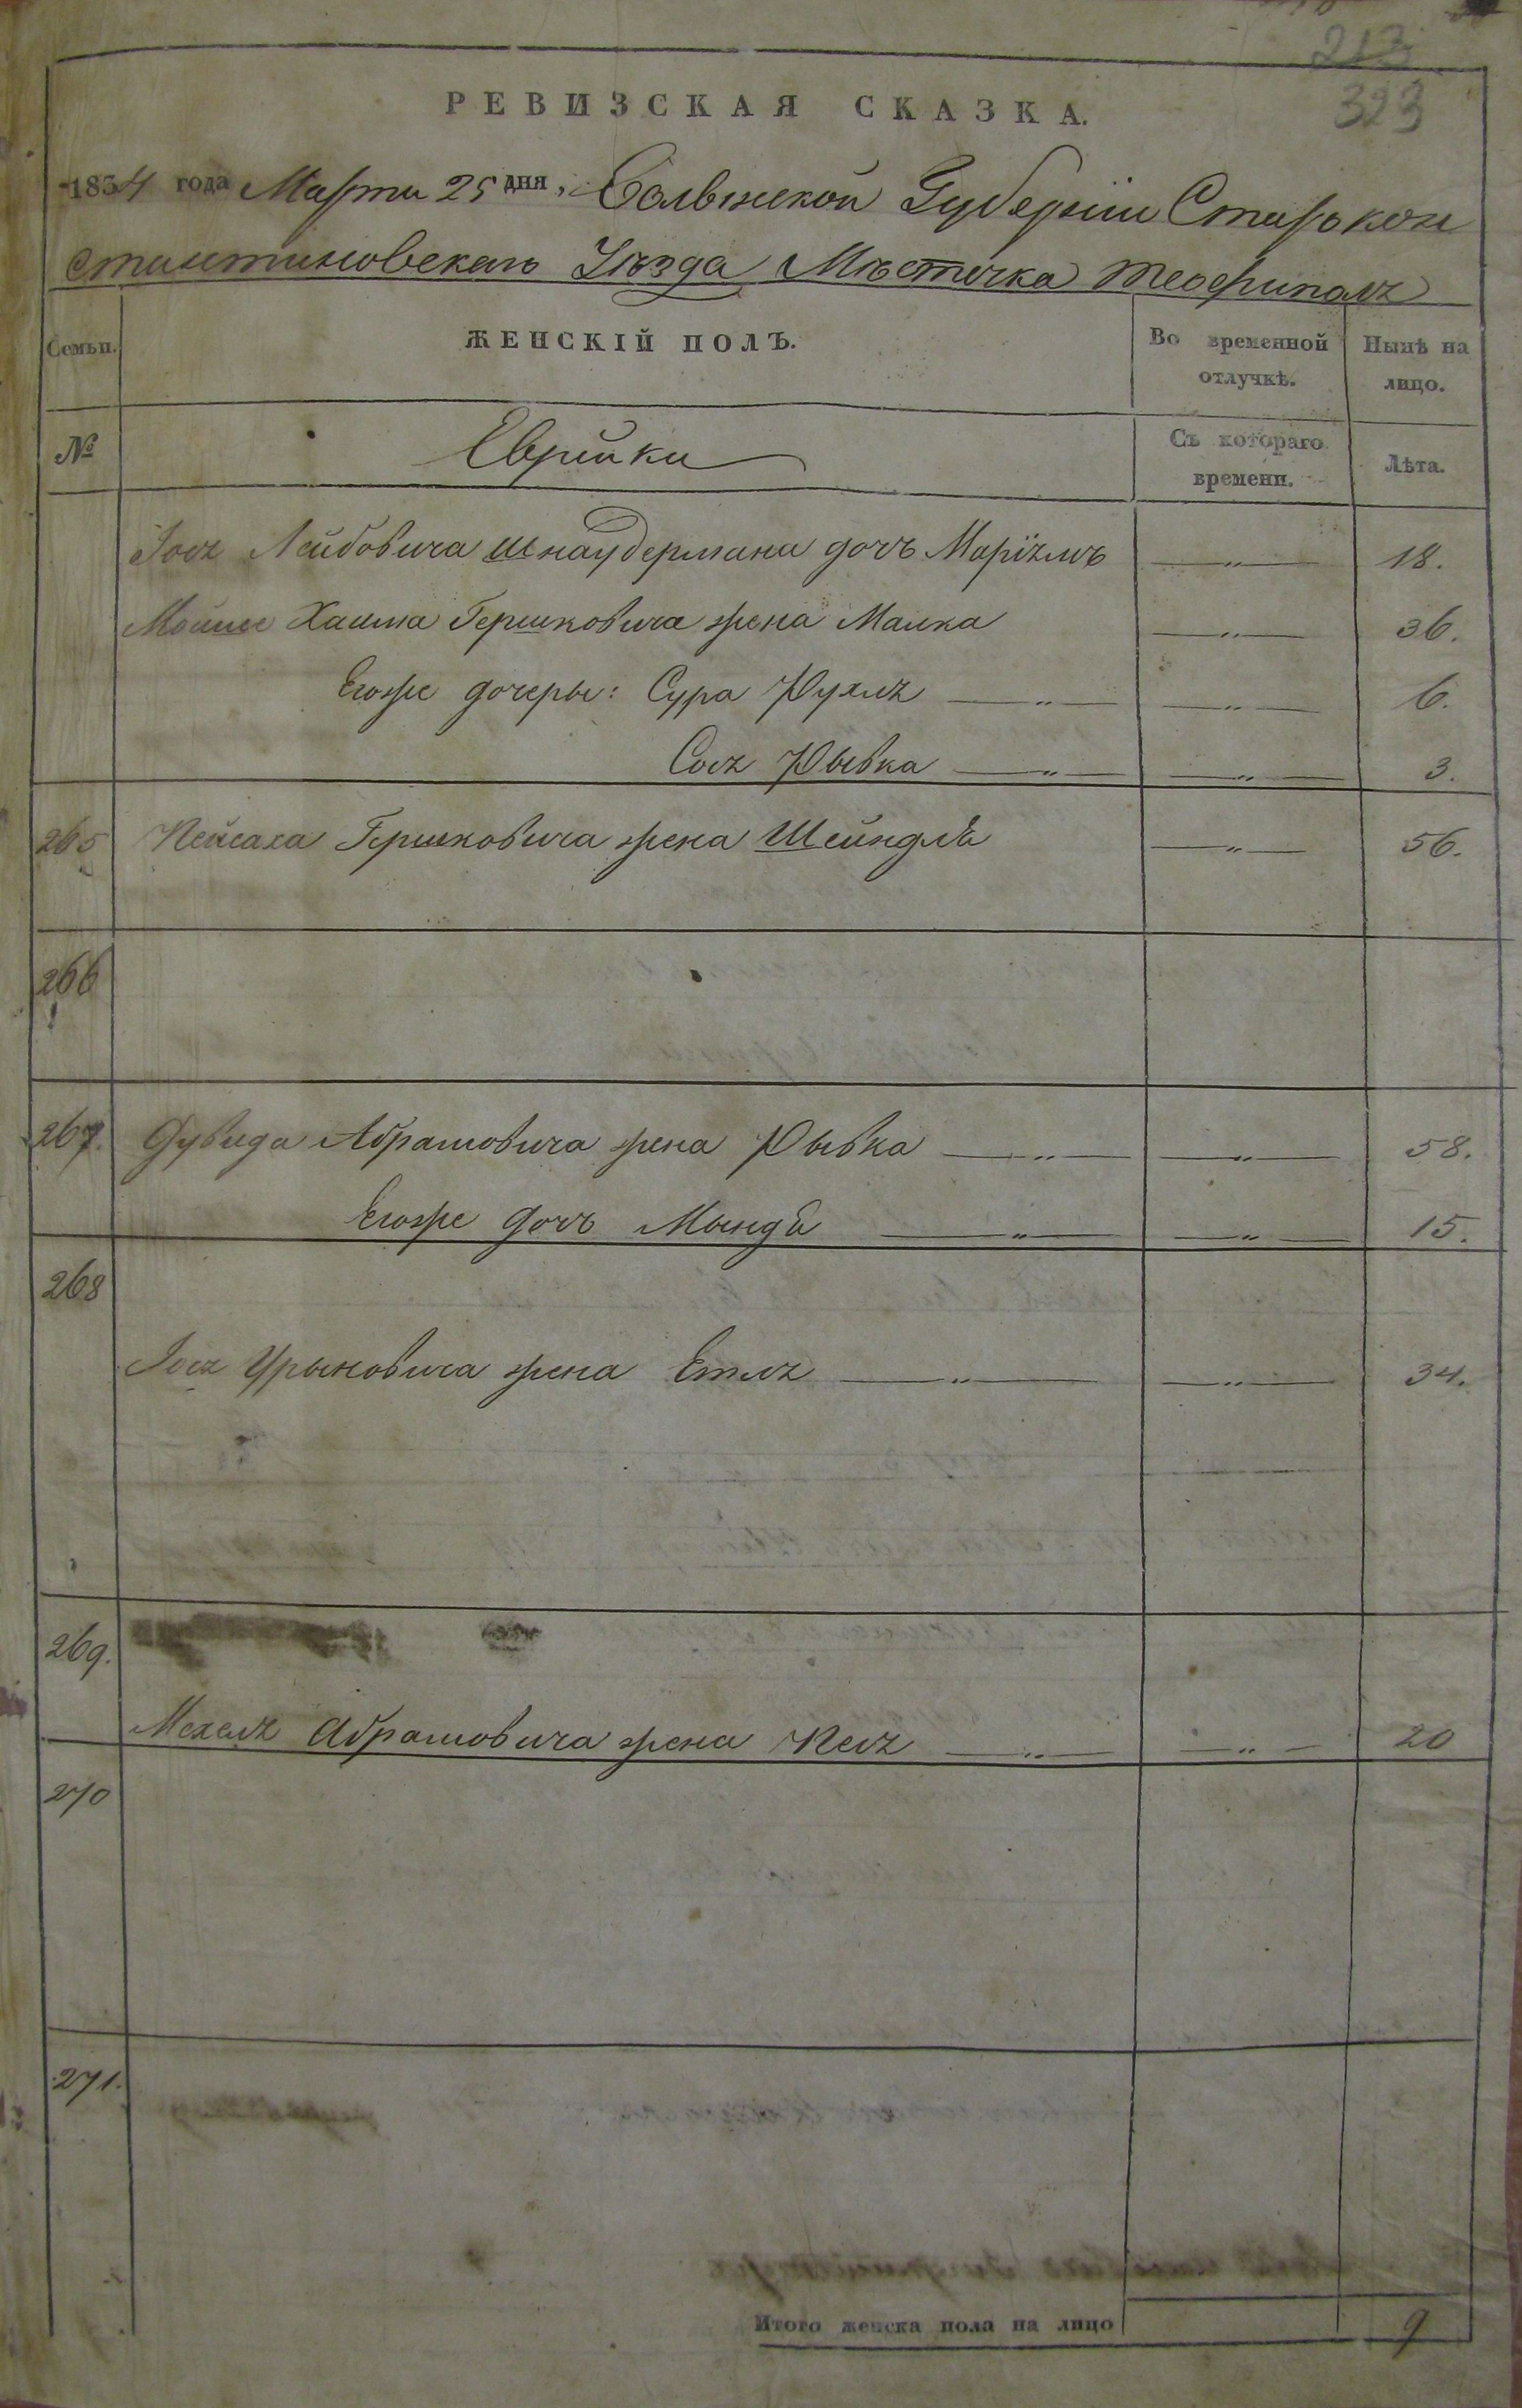 213
323
РЕВИЗСКАЯ СКАЗКА.
1834 года Марта 25 дня, Волынской Губернии Старокон
стантиновскаго Уѣзда Мѣстечка Теофиполь
Семьи. ЖЕНСКІЙ ПОЛЪ. Во временной отлучкѣ. Нынѣ на лицо.
№ Еврейки Съ котораго времени. Лѣта.
Іося Лейбовича Шнаудермана дочь Маріемъ — „ — 18.
Мошки Хаима Гершковича жена Малка — „ — 36.
Егоже дочеры: Сура Рухля — „ — — „ — 6.
Сося Рывка — „ — — „ — 3.
265 Пейсаха Гершковича жена Шейндля — „ — 56.
266
267. Дувида Абрамовича жена Рывка — „ — — „ — 58.
Егоже дочь Мындя — „ — — „ — 15.
268
Іося Урыновича жена Етля — „ — — „ — 34.
269.
Мехеля Абрамовича жена Песя — „ — — „ — 20
270
271.
Итого женска пола на лицо 9